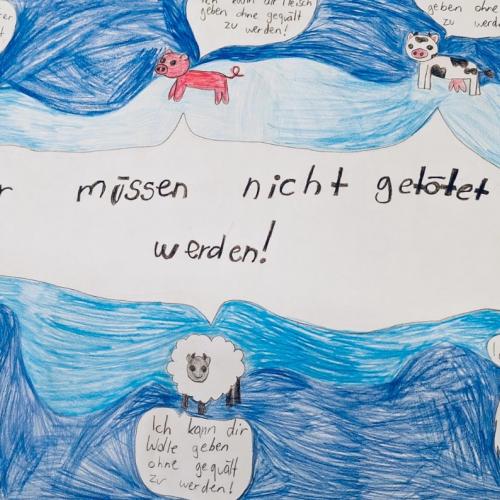 Ich kann dir Fleisch
geben ohne gequält
zu werden!
geben ohne
zu werden
müssen nicht getötet
werden!
Ich kann dir
Wolle geben
ohne gequält
zu werden!